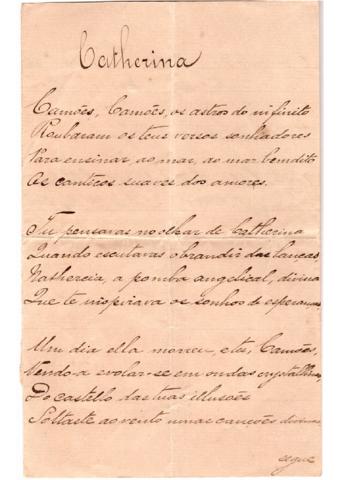 Catherina
Camões, Camões, os astros do infinito
Roubaram os teus versos sonhadores
Para ensinar, ao mar, ao mar bendito
Os canticos suaves dos amores.
Tu pensavas no olhar de Catherina
Quando escutavas o brandir das lanças,
Nathercia, a pomba angelical, divina
Que te inspirava os sonhos de esperanças.
Um dia ella morreu, e tu, Camões,
Vendo-a evolar-se em ondas crystallinas
Do castello das tuas illusões
Soltaste ao vento umas canções divinas
segue